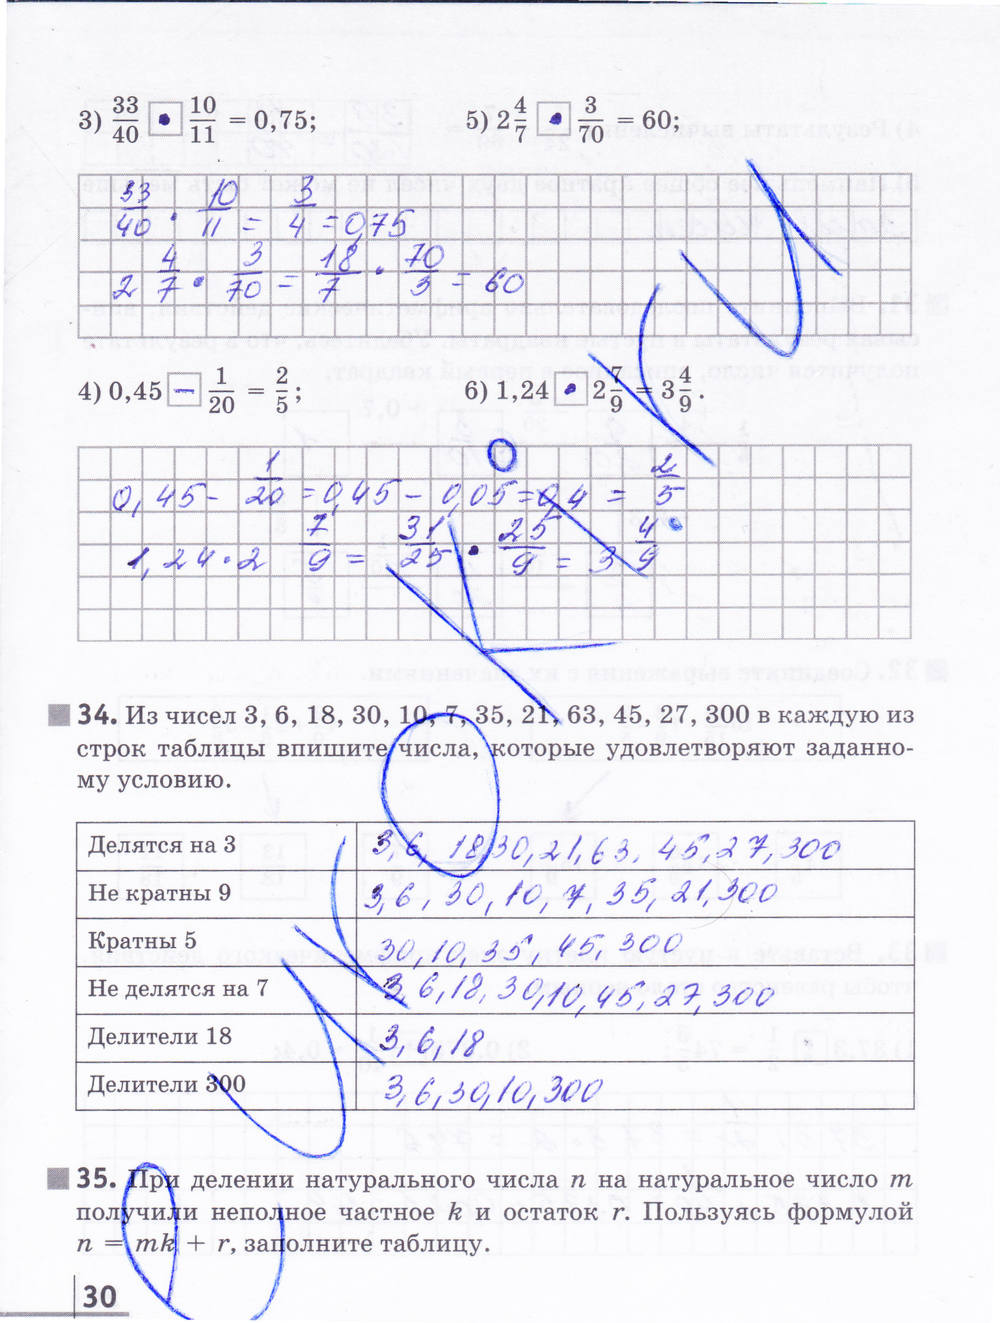 3) 33/40 · 10/11 = 0,75;
5) 2 4/7 · 3/70 = 60;
33/40 · 10/11 = 3/4 = 0,75
2 4/7 · 3/70 = 18/7 · 70/3 = 60
4) 0,45 − 1/20 = 2/5;
6) 1,24 · 2 7/9 = 3 4/9.
0,45 − 1/20 = 0,45 − 0,05 = 0,4 = 2/5
1,24 · 2 7/9 = 31/25 · 25/9 = 3 4/9
34. Из чисел 3, 6, 18, 30, 10, 7, 35, 21, 63, 45, 27, 300 в каждую из
строк таблицы впишите числа, которые удовлетворяют заданно-
му условию.
Делятся на 3 3, 6, 18, 30, 21, 63, 45, 27, 300
Не кратны 9 3, 6, 30, 10, 7, 35, 21, 300
Кратны 5 30, 10, 35, 45, 300
Не делятся на 7 3, 6, 18, 30, 10, 45, 27, 300
Делители 18 3, 6, 18
Делители 300 3, 6, 30, 10, 300
35. При делении натурального числа n на натуральное число m
получили неполное частное k и остаток r. Пользуясь формулой
n = mk + r, заполните таблицу.
30